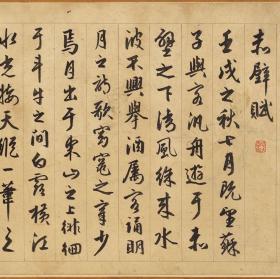 赤壁賦
壬戌之秋七月既望蘇
子與客汎舟遊于赤
壁之下清風徐來水
波不興舉酒属客誦明
月之詩歌窈窕之章少
焉月出于東山之上徘徊
于斗牛之間白露橫江
水光接天縱一葦之